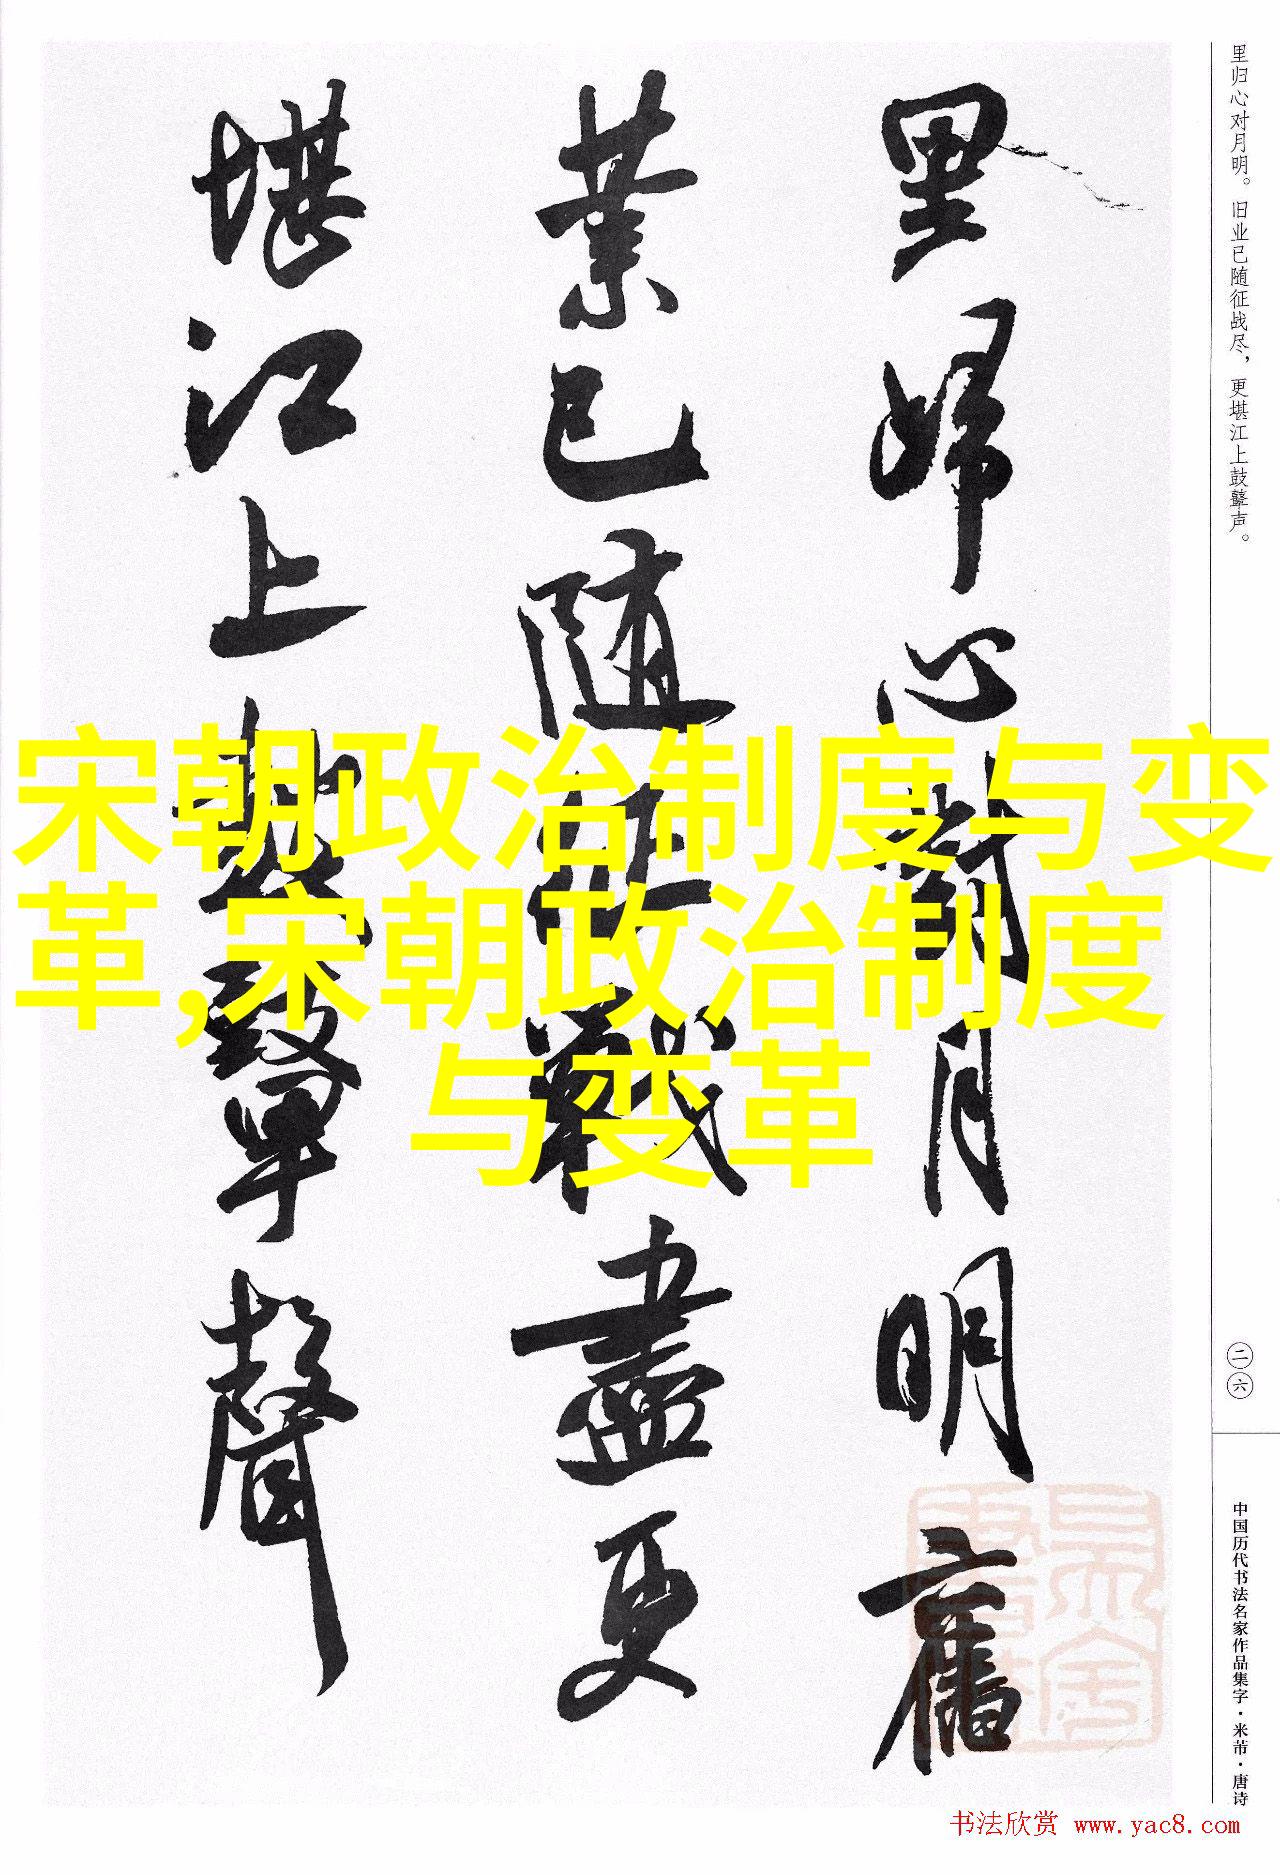 里归心对月明。旧业已随征战尽，更堪江上鼓鼙声。
二六
中国历代书法名家作品集字·米芾·唐诗
里歸心對月明舊
業已隨征戰盡更
堪江上鼓鼙聲
宋朝政治制度与变
革,宋朝政治制度
与变革
书法欣赏 www.yac8.com